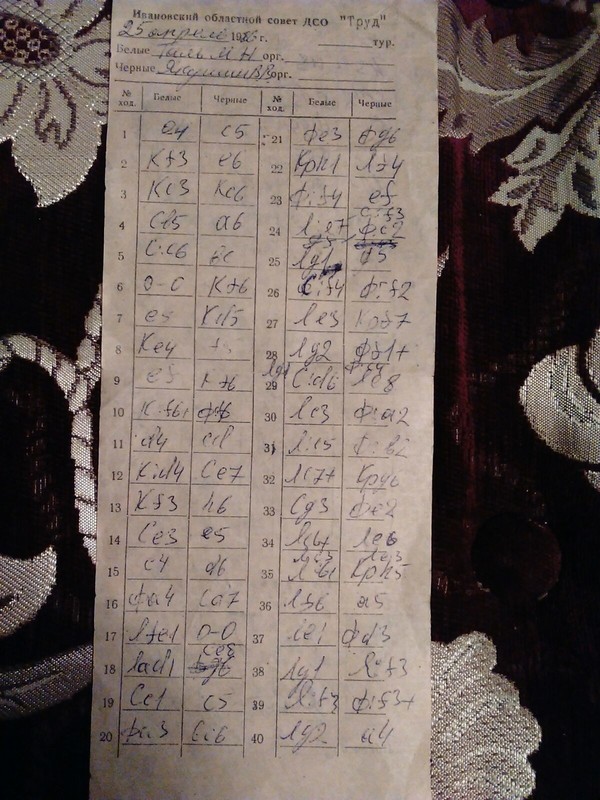 Ивановский областной совет ДСО "Труд"
25 апреля 1986 г. тур.
Белые орг.
Черные орг.
№ ход. Белые Черные № ход. Белые Черные
1 e4 c5 21 Фe3 Фg6
2 Кf3 e6 22 Крh1 Лf4
3 Кc3 Кc6 23 Ф:f4 ef
4 Сb5 a6 24 Л:e7 Ф:c2 С:f3
5 С:c6 bc 25 Лg1 d5
6 0-0 Кf6 26 С:f4 Ф:f2
7 e5 Кd5 27 Лe3 Крf7
8 Кe4 f5 28 Лg2 Фf1+
9 ef К:f6 29 С:d6 Лg8
10 К:f6+ Ф:f6 30 Лc3 Ф:a2
11 d4 cd 31 Л:c5 Ф:b2
12 К:d4 Сe7 32 Лc7+ Крg6
13 Кf3 h6 33 Сg3 Фe2
14 Сe3 e5 34 Лc6+ Лe6
15 c4 d6 35 Крh5
16 Фa4 Сd7 36 Лb6 a5
17 Лfe1 0-0 37 Лe1 Фd3
18 Лad1 Сe8 38 Лg1 Л:f3
19 Сc1 c5 39 Л:f3 Ф:f3+
20 Фa3 Сc6 40 Лg2 a4